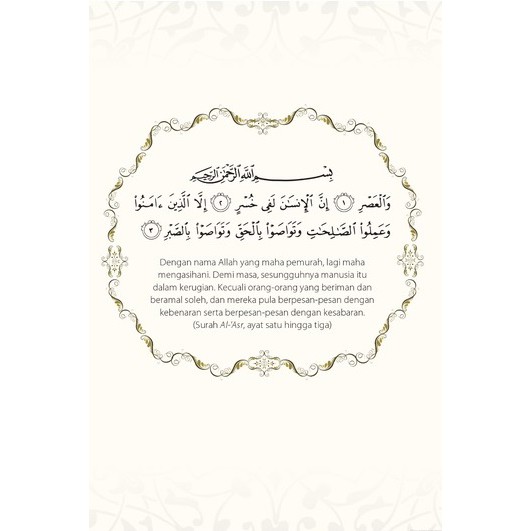 بِسْمِ ٱللَّهِ ٱلرَّحْمَٰنِ ٱلرَّحِيمِ
وَٱلْعَصْرِ ١ إِنَّ ٱلْإِنسَٰنَ لَفِى خُسْرٍ ٢ إِلَّا ٱلَّذِينَ ءَامَنُوا۟
وَعَمِلُوا۟ ٱلصَّٰلِحَٰتِ وَتَوَاصَوْا۟ بِٱلْحَقِّ وَتَوَاصَوْا۟ بِٱلصَّبْرِ ٣
Dengan nama Allah yang maha pemurah, lagi maha
mengasihani. Demi masa, sesungguhnya manusia itu
dalam kerugian. Kecuali orang-orang yang beriman dan
beramal soleh, dan mereka pula berpesan-pesan dengan
kebenaran serta berpesan-pesan dengan kesabaran.
(Surah Al-‘Asr, ayat satu hingga tiga)